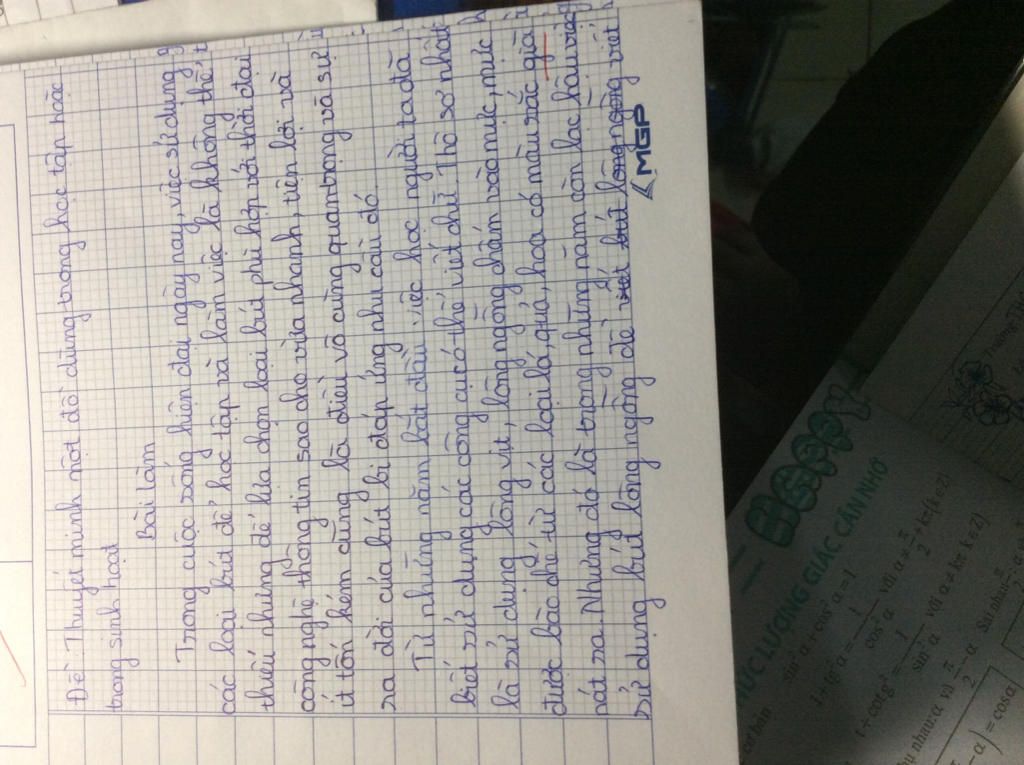 Đề: Thuyết minh một đồ dùng trong học tập hoặc
trong sinh hoạt
Bài làm
Trong cuộc sống hiện đại ngày nay, việc sử dụng
các loại bút để học tập và làm việc là không thể t
thiếu nhưng để lựa chọn loại bút phù hợp với thời đại
công nghệ thông tin sao cho vừa nhanh, tiện lợi và
ít tốn kém cũng là điều vô cùng quan trọng và sự
ra đời của bút bi đáp ứng nhu cầu đó
Từ những năm bắt đầu việc học người ta đã
biết sử dụng các công cụ có thể viết chữ. Thô sơ nhất
là sử dụng lông vịt, lông ngỗng chấm vào mực, mực
được bào chế từ các loại lá, quả, hoa có màu sắc giã
nát ra. Nhưng đó là trong những năm còn lạc hậu việc
sử dụng bút lông ngỗng để viết bút lông ngỗng viết
<MGP
ỨC LƯỢNG GIÁC CẦN NHỚ
cơ bản
sin² α + cos² α = 1
1 + tg² α = 1/cos² α với α ≠ π/2 + kπ (k∈Z)
1 + cotg² = 1/sin² α với α ≠ kπ k∈Z)
hụ nhau: α và π/2 - α
- α) = cosα
Trường